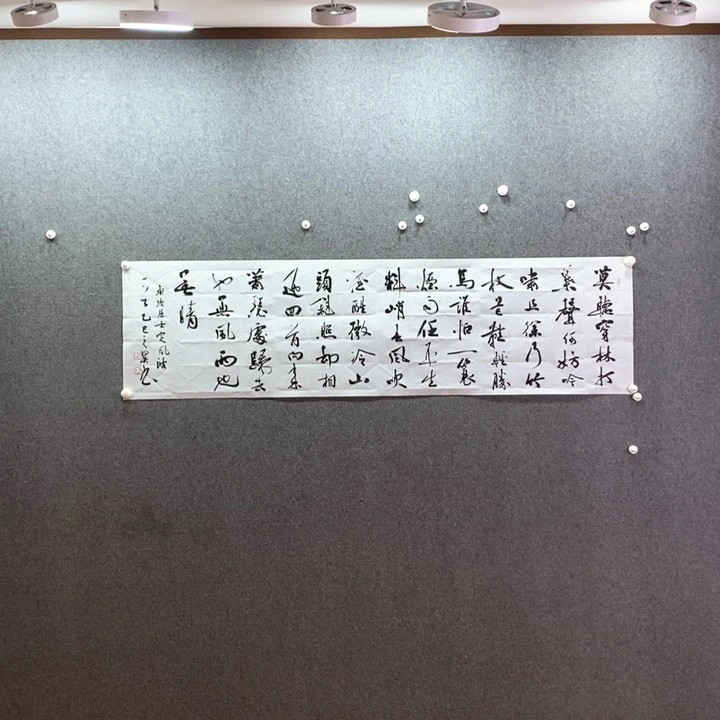 莫聽穿林打
葉聲何妨吟
嘯且徐行竹
杖芒鞋輕勝
馬誰怕一簑
煙雨任平生
料峭春風吹
酒醒微冷山
頭斜照却相
迎回首向來
蕭瑟處歸去
也無風雨也
無晴
東坡居士定風波
乙巳之夏